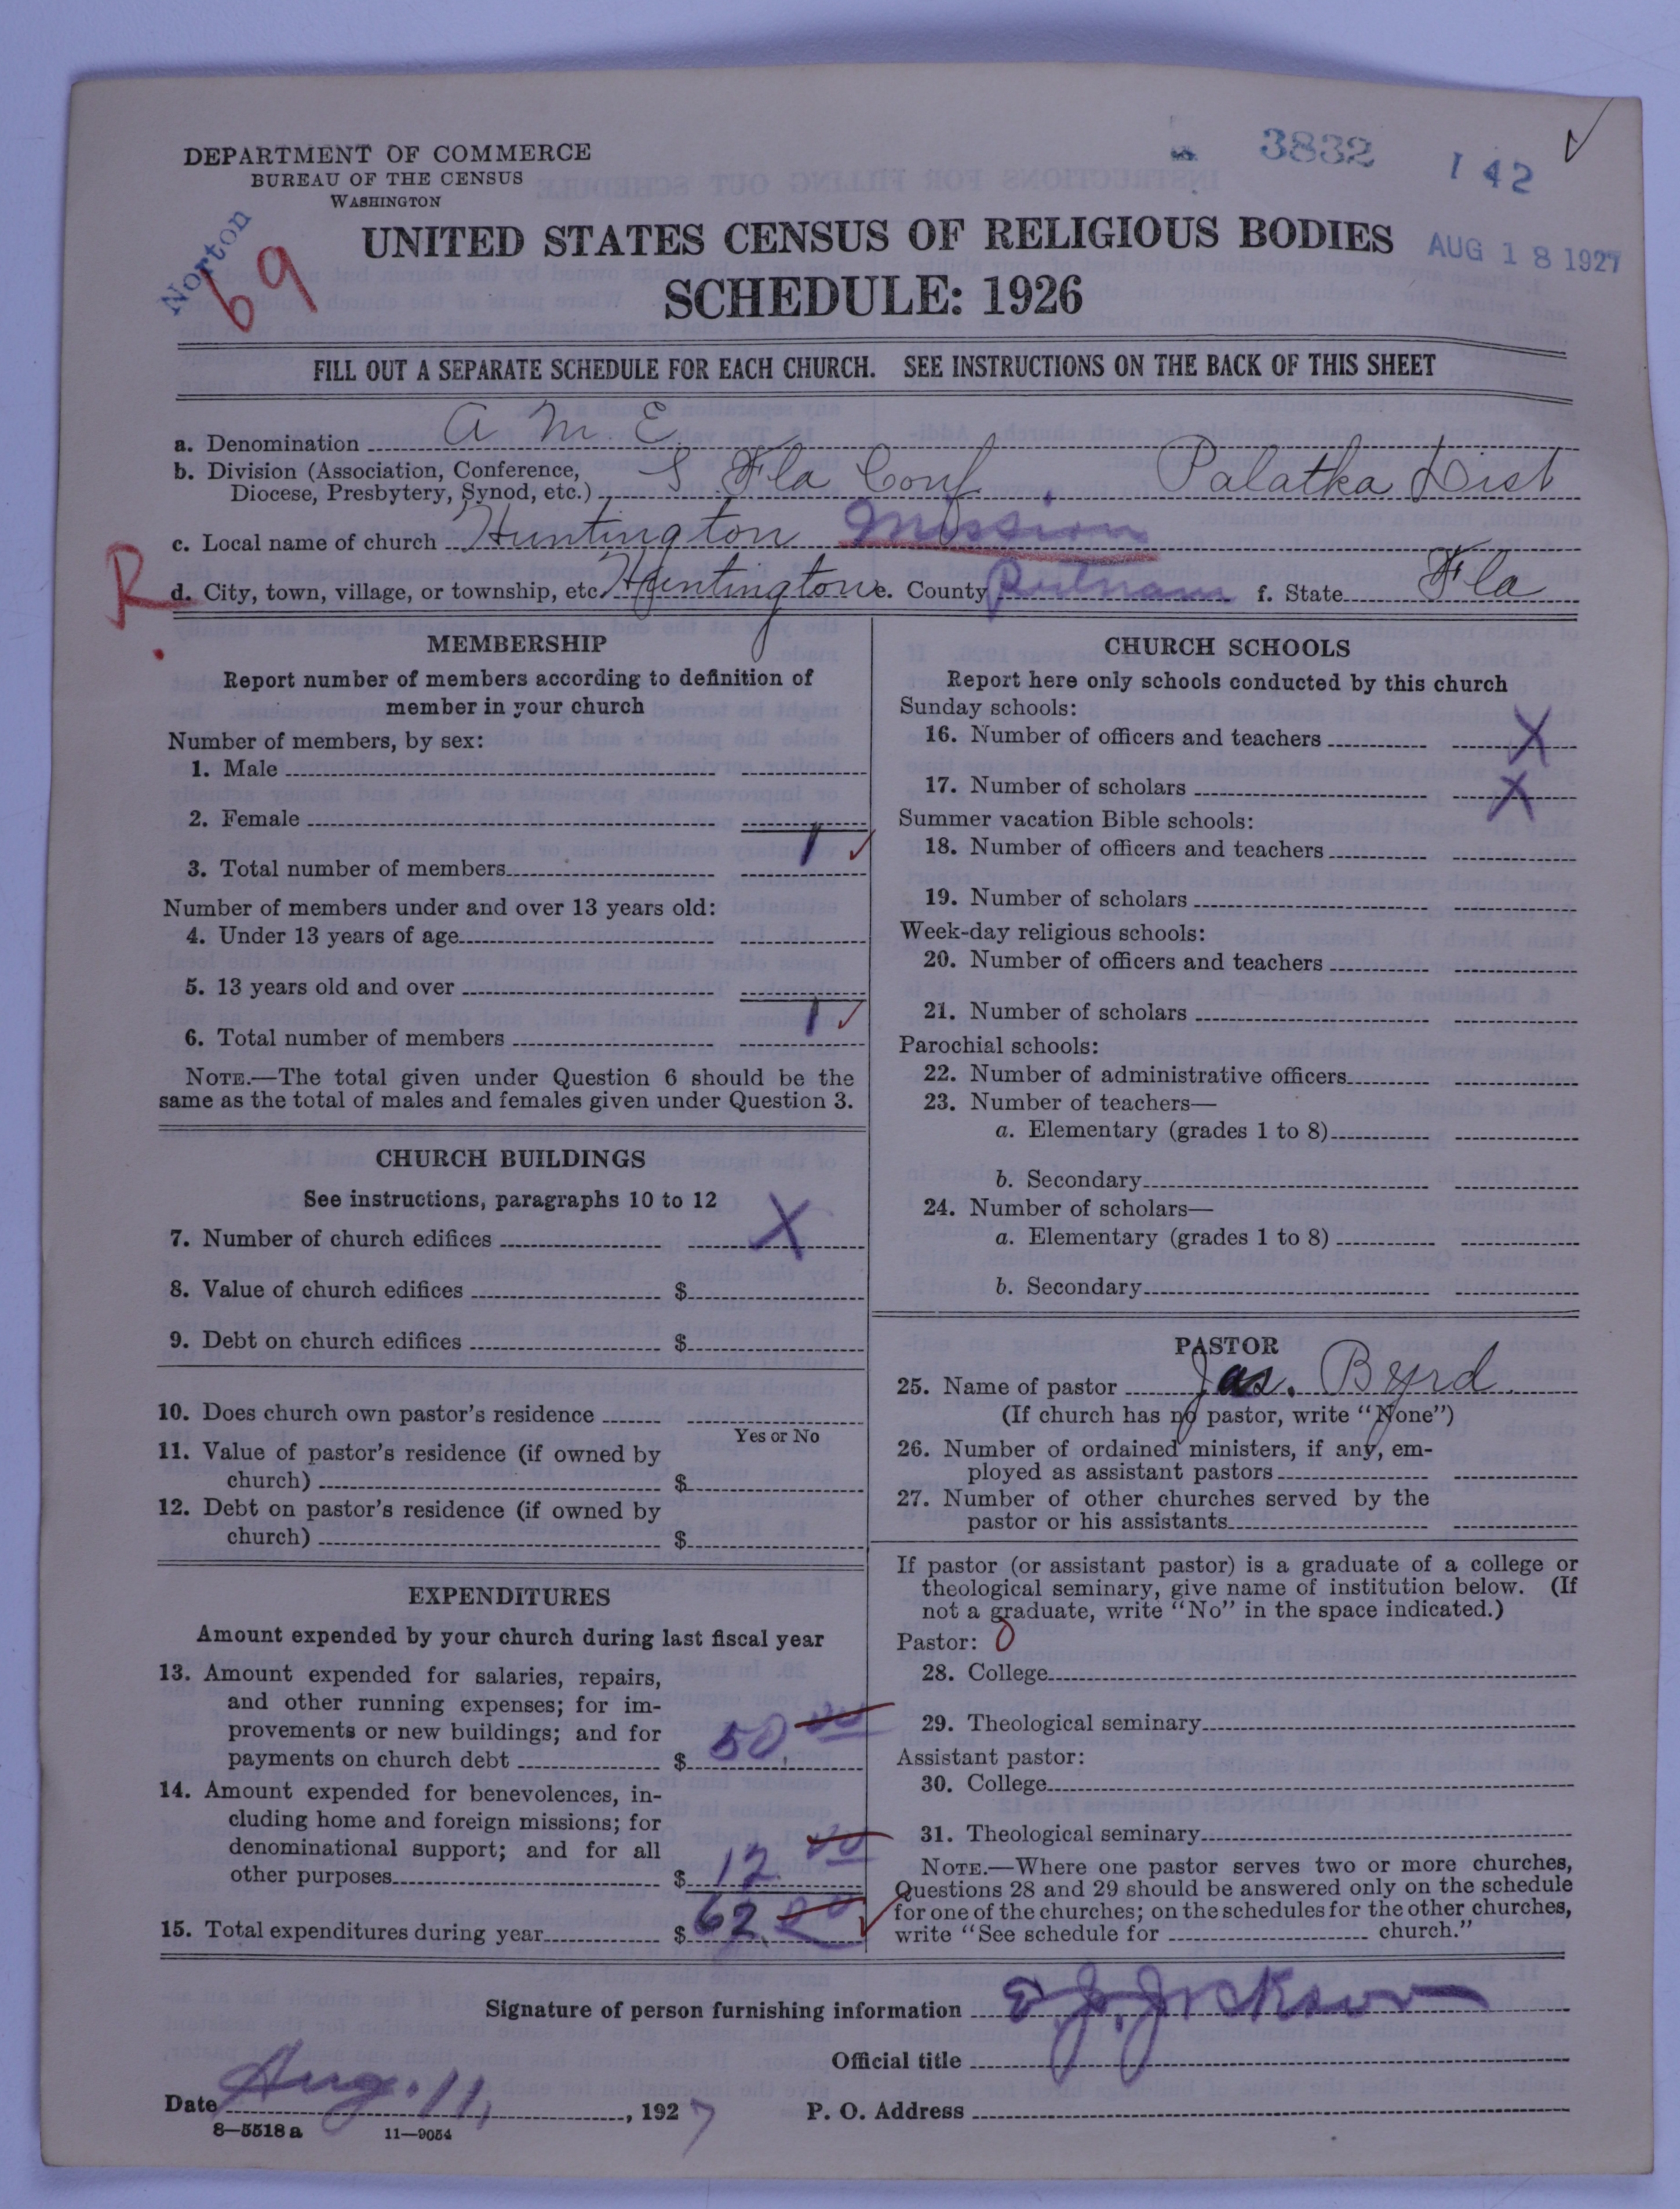 3832
142
DEPARTMENT OF COMMERCE
BUREAU OF THE CENSUS
WASHINGTON
Norton
69
UNITED STATES CENSUS OF RELIGIOUS BODIES
AUG 18 1927
SCHEDULE: 1926
FILL OUT A SEPARATE SCHEDULE FOR EACH CHURCH. SEE INSTRUCTIONS ON THE BACK OF THIS SHEET
a. Denomination A M. E.
b. Division (Association, Conference, Diocese, Presbytery, Synod, etc.) S Fla Conf. Palatka Dist
c. Local name of church Huntington Mission
R. d. City, town, village, or township, etc. Huntington e. County Putnam f. State Fla
MEMBERSHIP
Report number of members according to definition of
member in your church
Number of members, by sex:
1. Male
2. Female
3. Total number of members 1
Number of members under and over 13 years old:
4. Under 13 years of age
5. 13 years old and over
6. Total number of members 1
NOTE.—The total given under Question 6 should be the
same as the total of males and females given under Question 3.
CHURCH BUILDINGS
See instructions, paragraphs 10 to 12
7. Number of church edifices X
8. Value of church edifices $
9. Debt on church edifices $
10. Does church own pastor's residence
Yes or No
11. Value of pastor's residence (if owned by
church) $
12. Debt on pastor's residence (if owned by
church) $
EXPENDITURES
Amount expended by your church during last fiscal year
13. Amount expended for salaries, repairs,
and other running expenses; for im-
provements or new buildings; and for
payments on church debt $ 50.00
14. Amount expended for benevolences, in-
cluding home and foreign missions; for
denominational support; and for all
other purposes $ 12.00
15. Total expenditures during year $ 62.00
CHURCH SCHOOLS
Report here only schools conducted by this church
Sunday schools:
16. Number of officers and teachers X
17. Number of scholars X
Summer vacation Bible schools:
18. Number of officers and teachers
19. Number of scholars
Week-day religious schools:
20. Number of officers and teachers
21. Number of scholars
Parochial schools:
22. Number of administrative officers
23. Number of teachers—
a. Elementary (grades 1 to 8)
b. Secondary
24. Number of scholars—
a. Elementary (grades 1 to 8)
b. Secondary
PASTOR
25. Name of pastor Jas. Byrd
(If church has no pastor, write "None")
26. Number of ordained ministers, if any, em-
ployed as assistant pastors
27. Number of other churches served by the
pastor or his assistants
If pastor (or assistant pastor) is a graduate of a college or
theological seminary, give name of institution below. (If
not a graduate, write "No" in the space indicated.)
Pastor: 0
28. College
29. Theological seminary
Assistant pastor:
30. College
31. Theological seminary
NOTE.—Where one pastor serves two or more churches,
Questions 28 and 29 should be answered only on the schedule
for one of the churches; on the schedules for the other churches,
write "See schedule for church."
Signature of person furnishing information E. J. Jackson
Official title
Date Aug. 11, 1927 P. O. Address
8—5518 a 11—9054